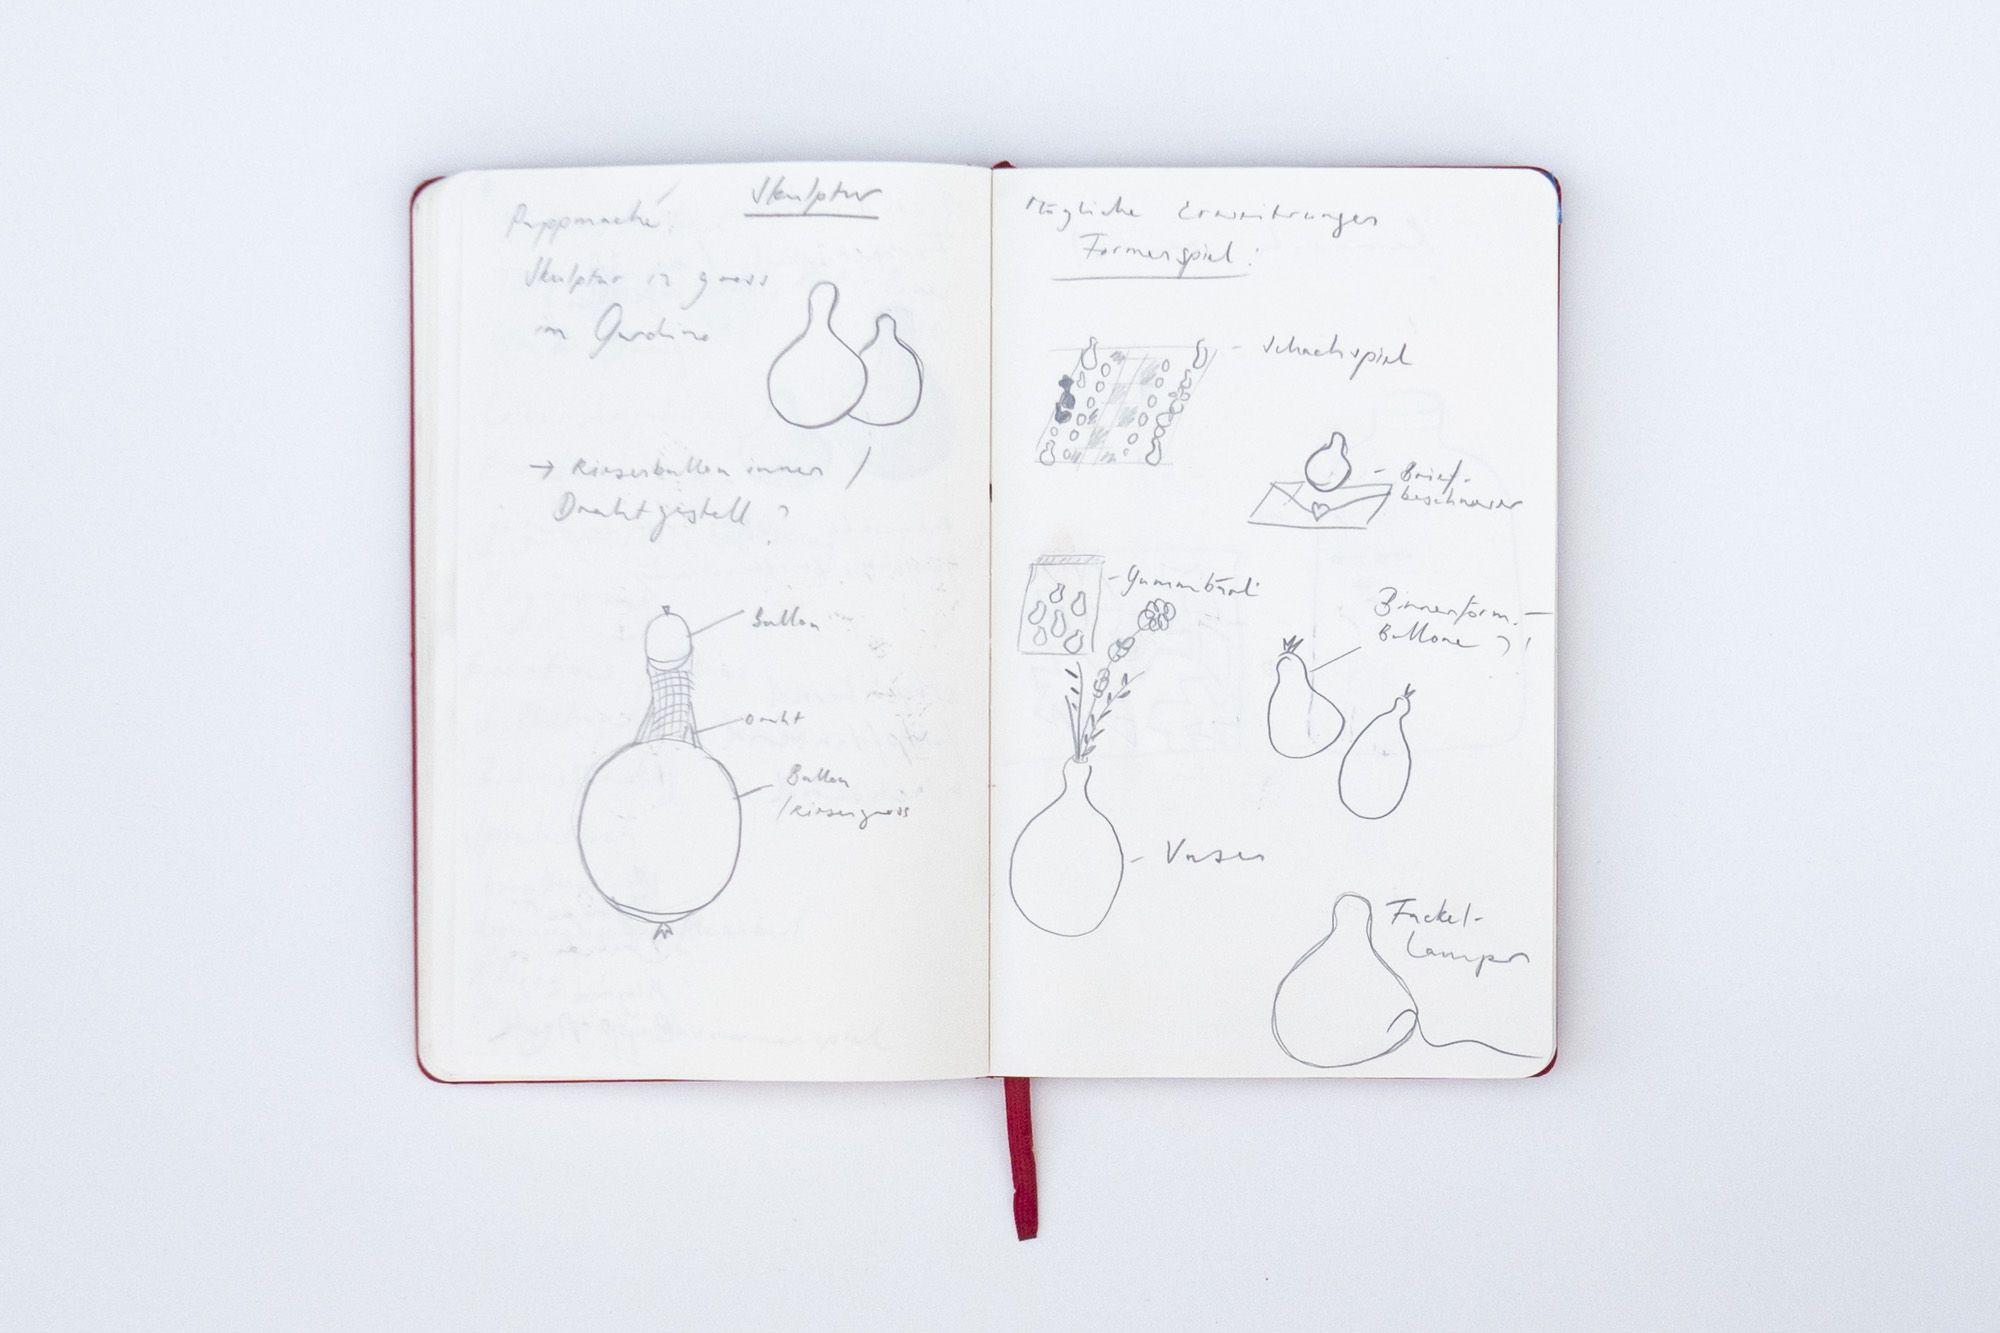 Skulptur
Pappmaché:
Skulptur in gross
im
→ Riesenballon innen /
Drahtgestell ?
Ballon
Draht
Ballon
/riesengross
Mögliche Erweiterungen
Formenspiel:
- Schachspiel
- Brief-
beschwerer
- Gummibärli
Birnenform-
Ballone ?!
- Vasen
Fackel-
Lampen